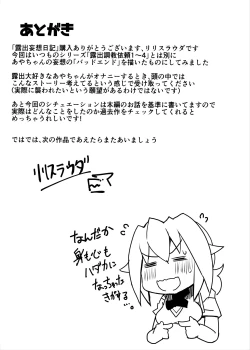 あとがき
「露出妄想日記」購入ありがとうございます、リリスラウダです
今回はいつものシリーズ「露出調教依頼1~4」とは別に
あやちゃんの妄想の「バッドエンド」を描いたものにしてみました
露出大好きなあやちゃんがオナニーするとき、頭の中では
こんなストーリーがあるという感じで受け取ってください
(実際に襲われたいという願望があるわけではないです)
あと今回のシチュエーションは本編のお話を基準に書いてますので
実際はどんなことをしたのか過去作をチェックしてくれると
めっちゃうれしいです!
ではでは、次の作品であえたらまたあいましょう
リリスラウダ
なんだか
身も心も
ハダカに
なっちゃた
きがする...